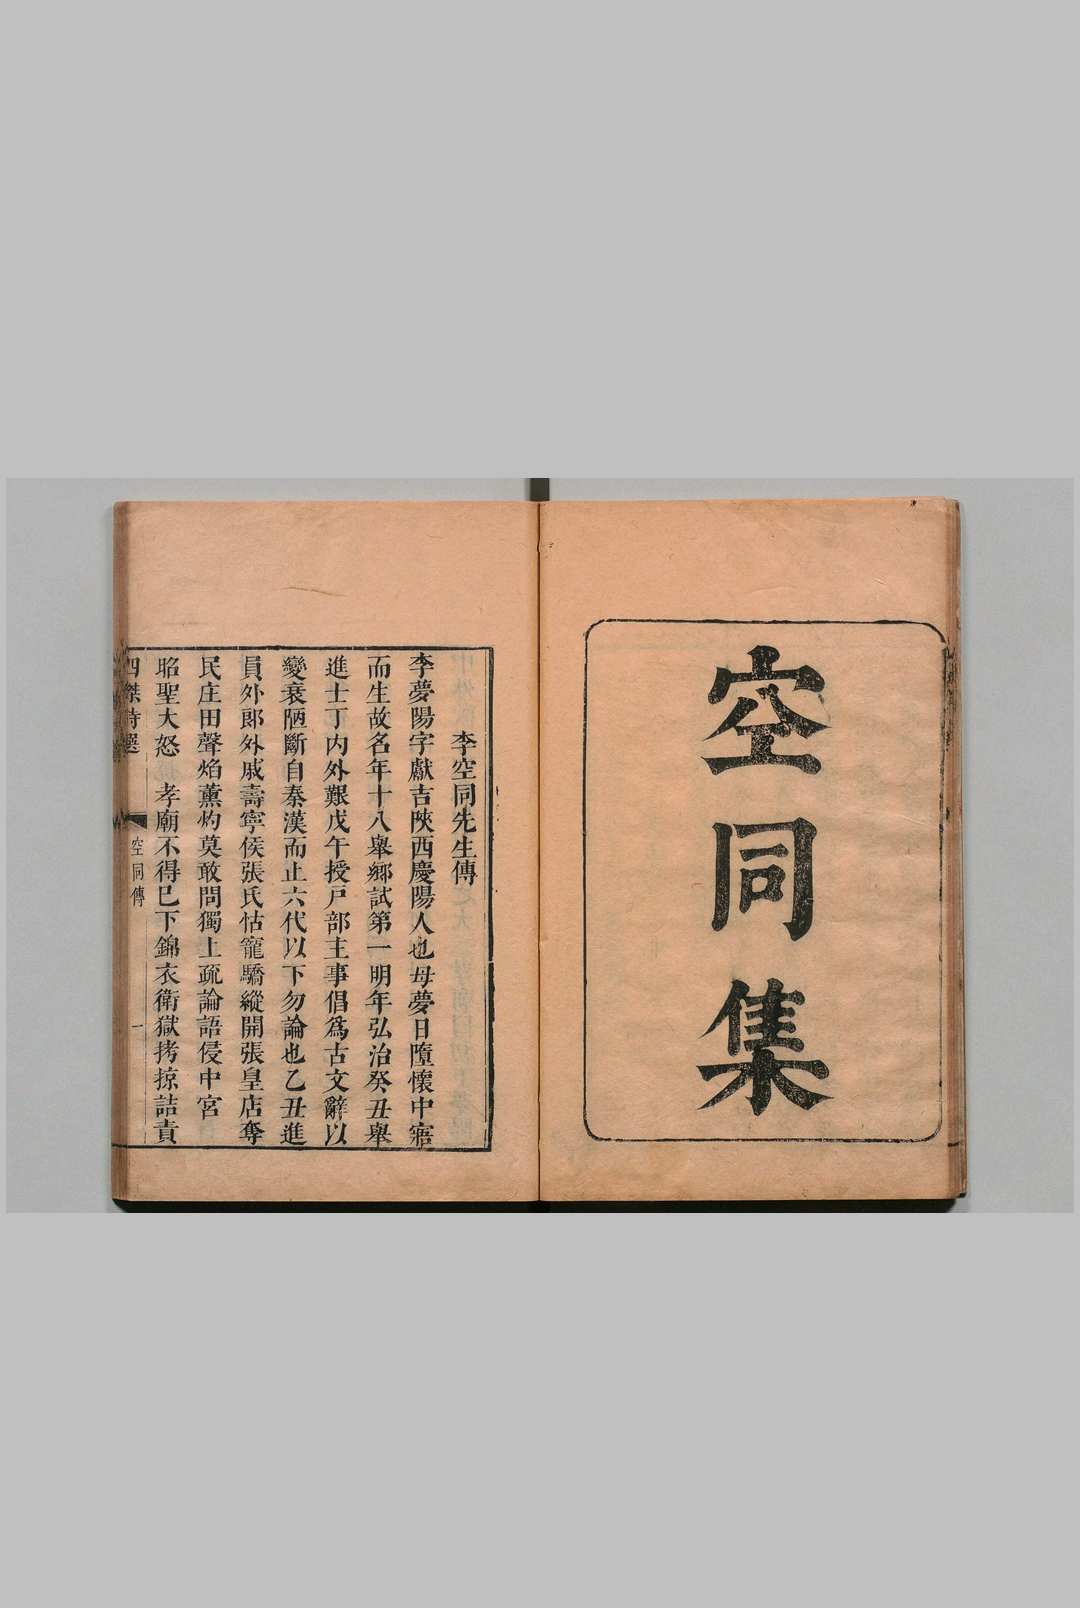 空同集
李空同先生傳
李夢陽字獻吉陝西慶陽人也母夢日墮懷中寤
而生故名年十八舉鄉試第一明年弘治癸丑舉
進士丁內外艱戊午授戸部主事倡爲古文辭以
變衰陋斷自秦漢而止六代以下勿論也乙丑進
員外郎外戚壽寧侯張氏怙寵驕縱開張皇店奪
民庄田聲焰薰灼莫敢問獨上疏論語侵中宮
昭聖大怒 孝廟不得已下錦衣衛獄拷掠詰責
四傑詩選 空同傳 一